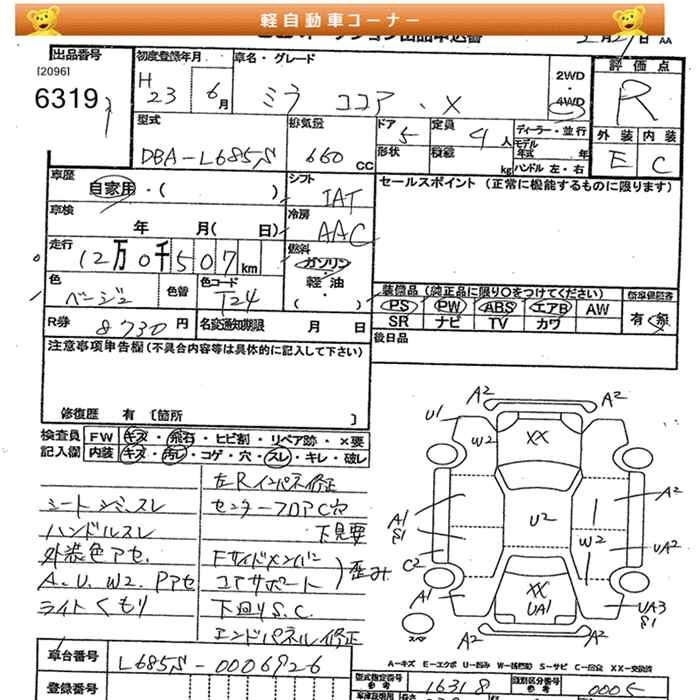 軽自動車コーナー
出品番号
[2096]
6319
初度登録年月
H 23 6月
車名・グレード
ミラ ココア・X
2WD
・
4WD
評価点
R
外装 内装
E C
型式
DBA-L685S
排気量
660 CC
ドア 5
形状
定員 4人
積載 kg
ディーラー・並行
モデル年式 年
ハンドル 左・右
車歴
自家用・( )
シフト
IAT
セールスポイント (正常に機能するものに限ります)
車検
年 月( 日)
冷房
AAC
走行
12万0千507km
燃料
ガソリン・
軽油・
( )
色
ベージュ
色替
色コード
T24
装備品 (純正品に限り○をつけてください)
PS PW ABS エアB AW
SR ナビ TV カワ
有・無
R券 8730円
名変通知期限 月 日
後日品
注意事項申告欄(不具合内容等は具体的に記入して下さい)
修復歴 有 [箇所 ]
検査員
記入欄
FW キズ・飛石・ヒビ割・リペア跡・×要
内装 キズ・汚レ・コゲ・穴・スレ・キレ・破レ
左Rインパネ修正
シートシミ、スレ
センターフロアC穴
ハンドルスレ
下見要
外装色アセ.
Fサイドメンバー
A.U.W2.Pアセ
コアサポート
歪み
ライトくもり
下廻りS.C.
エンドパネル修正
A2
A2
U1
W2
XX
A2
A1
S1
U2
W2
UA2
C2
A1
XX
UA1
UA3
S1
A2
A2
車台番号
L685S-0006926
A-キズ E-エクボ U-凹み W-補修跡 S-サビ C-腐食 XX-交換済
型式指定番号
参考
16318
類別区分番号
参考
0005
登録番号